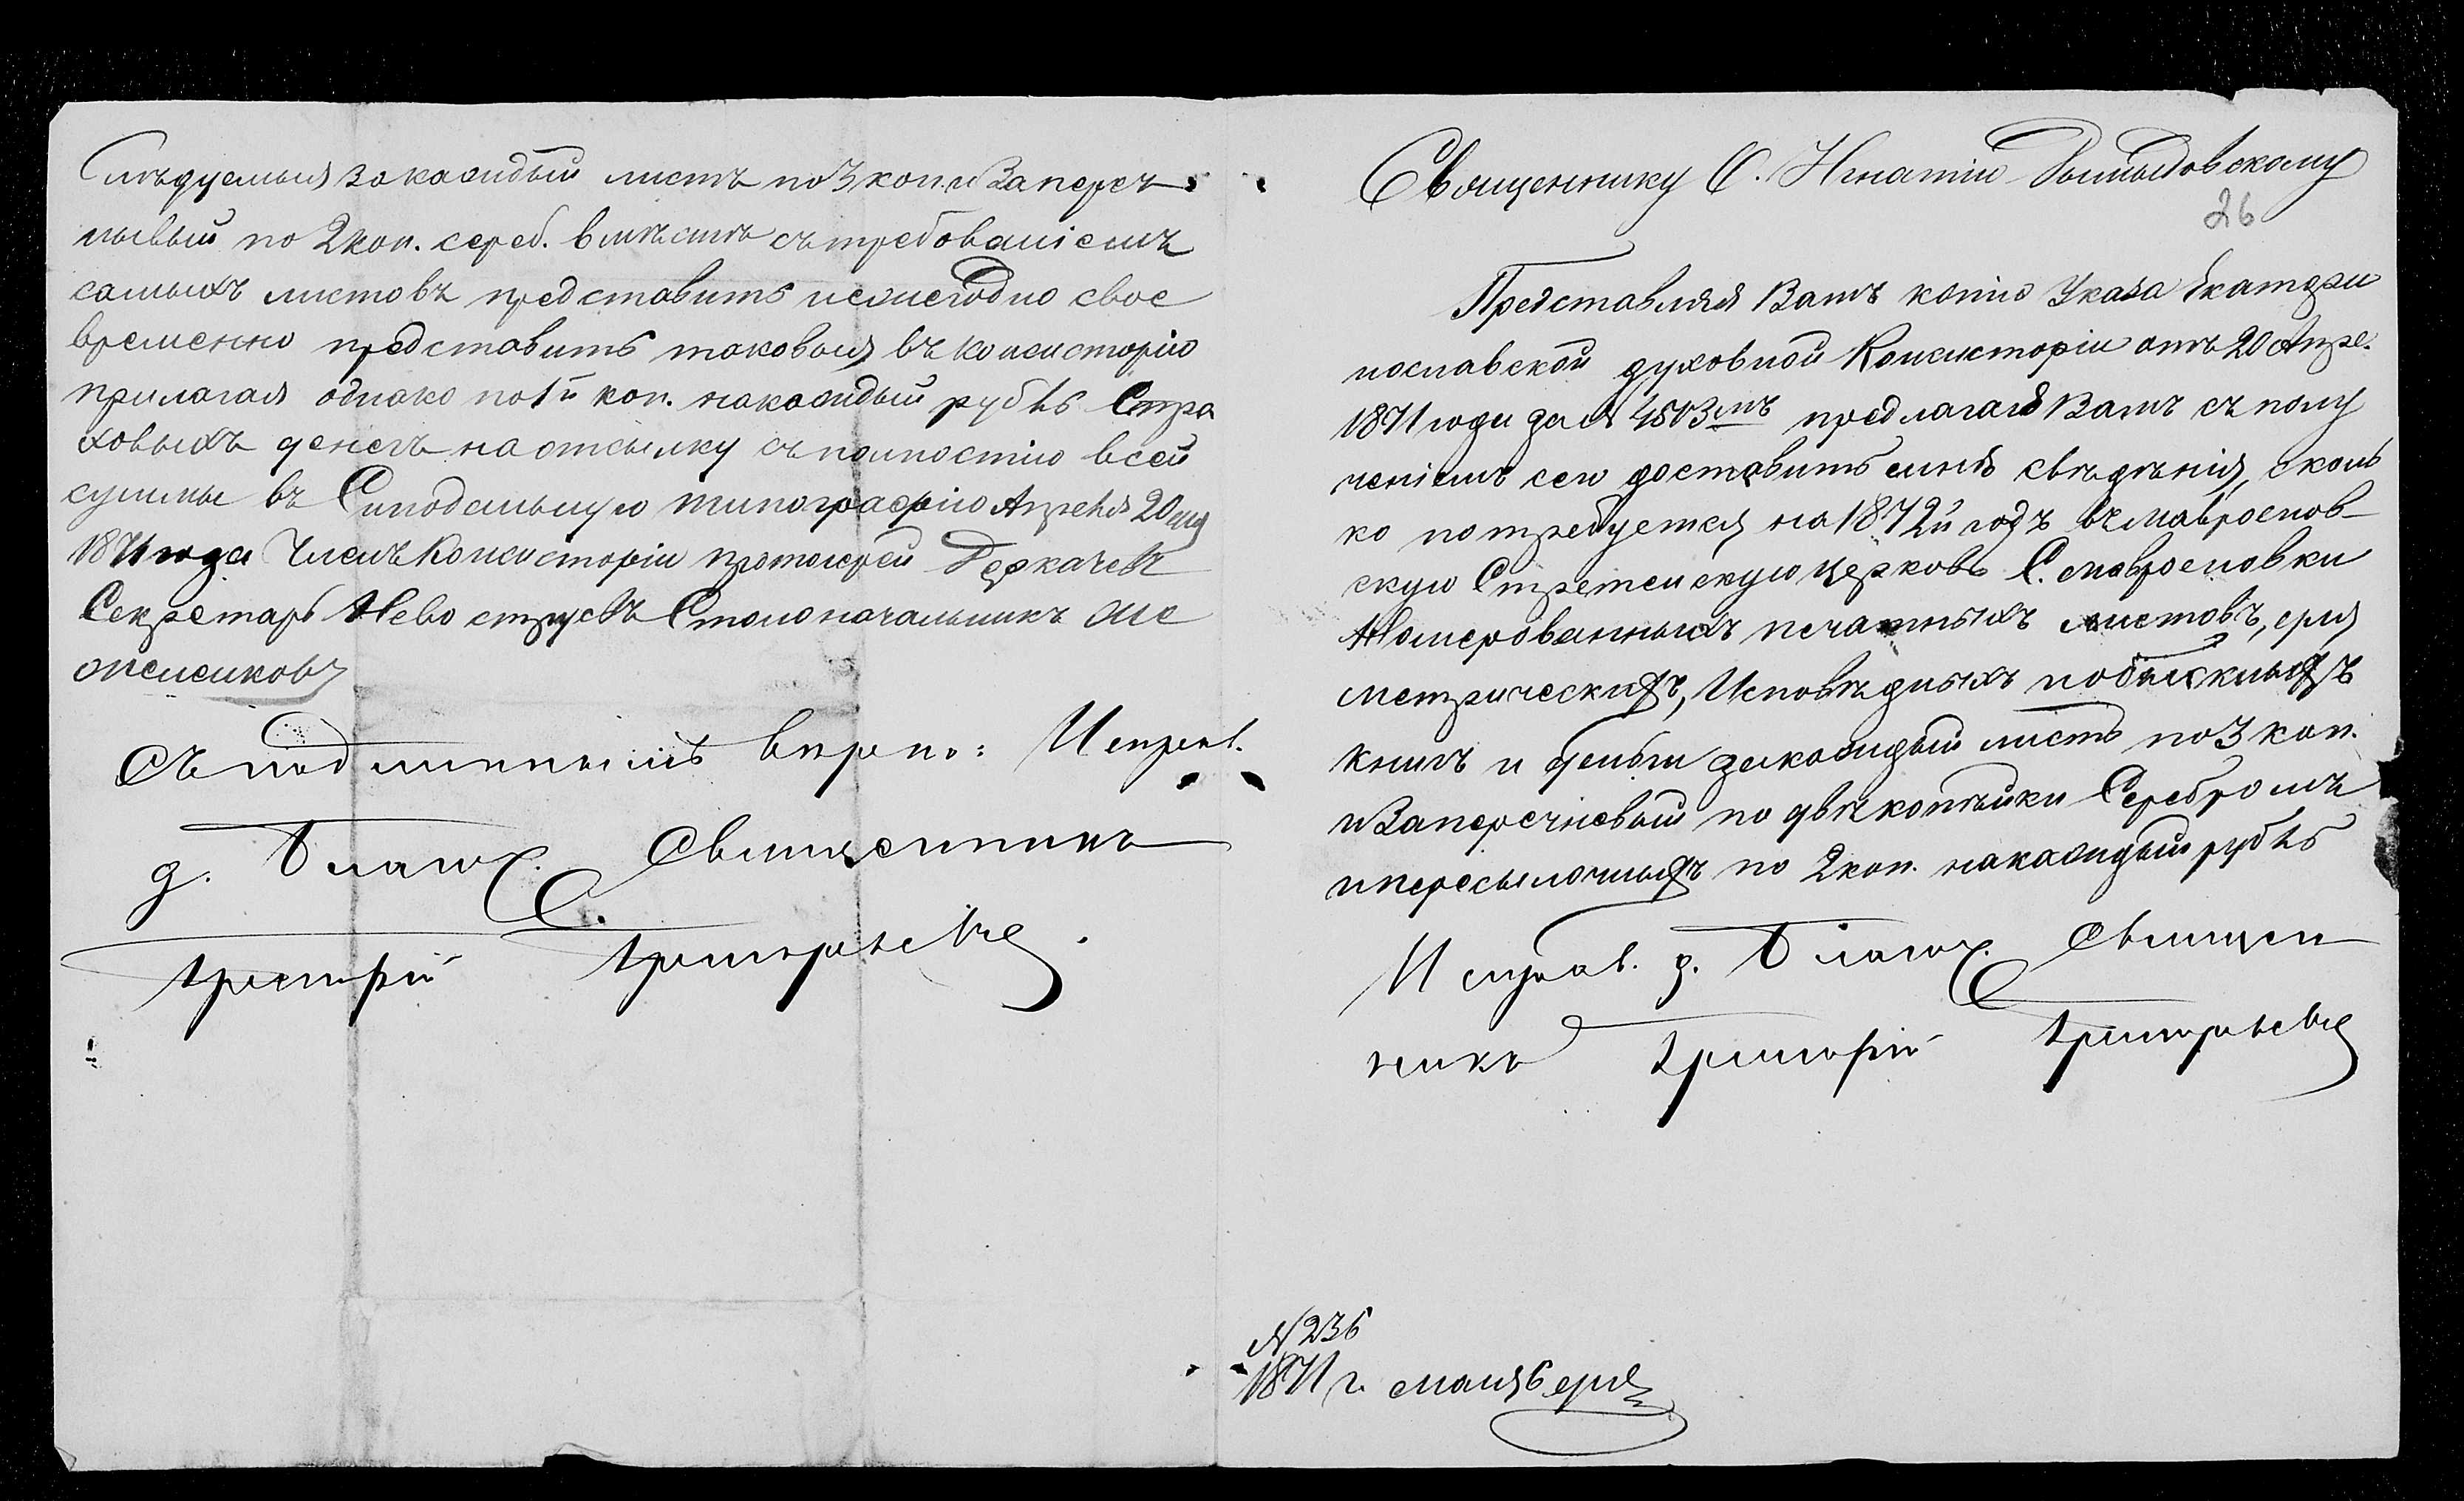 Слѣдуемыя за каждый листъ по 3 коп. и за переч
невый по 2 коп. сереб. вмѣстѣ съ требованіемъ
самыхъ листовъ представить неличегодно свое
временно представить таковыя въ консисторію
прилагая однако по 1й коп. на каждый рубль Стра
ховыхъ денегъ на отсылку съ полностію всей
суммы въ Синодальную типографію Апреля 20 дня
1871 года Членъ Консисторіи протоіерей Деркачевъ
Секретарь Невоструевъ Столоначальникъ
Съ подлиннымъ вѣрно: Исправ.
д. Благоч. Священникъ
Григорій Григорьевъ.
Священнику О. Игнатію
26
Представляя Вамъ копію Указа Екатери
нославской духовной Консисторіи отъ 20 Апре.
1871 года за № 4503мъ предлагаю Вамъ съ полу
ченіемъ сего доставить мнѣ свѣдѣнія, сколь
ко потребуется на 1872й годъ въ Мавроенов-
скую Стретенскую церковь С.
Номерованныхъ печатныхъ листовъ, для
Метрическихъ, Исповѣдныхъ и обыскныхъ
книгъ и деньги за каждый листъ по 3 коп.
и за перечневый по двѣ копѣйки Серебромъ
и пересылочныхъ по 2 коп. на каждый рубль
Исправ. д. Благоч. Священ
никъ Григорій Григорьевъ
№ 236
1871 г. мая 6 дня